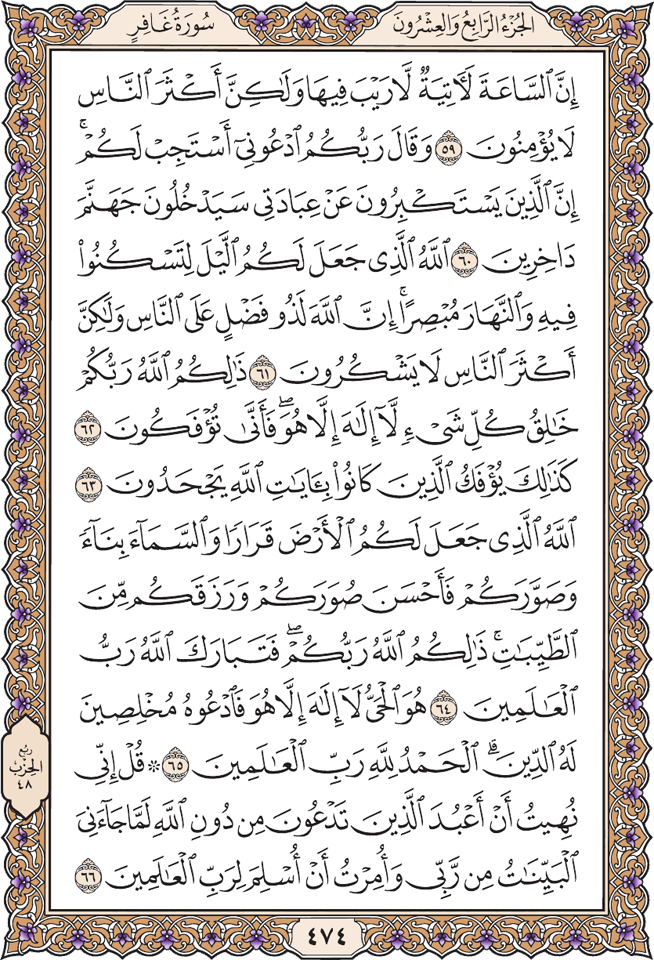 الجُزْءُ الرَّابِعُ وَالعِشْرُونَ
سُورَةُ غَافِرٍ
إِنَّ ٱلسَّاعَةَ لَأٓتِيَةٌ لَّا رَيْبَ فِيهَا وَلَٰكِنَّ أَكْثَرَ ٱلنَّاسِ
لَا يُؤْمِنُونَ ٥٩ وَقَالَ رَبُّكُمُ ٱدْعُونِىٓ أَسْتَجِبْ لَكُمْۚ
إِنَّ ٱلَّذِينَ يَسْتَكْبِرُونَ عَنْ عِبَادَتِى سَيَدْخُلُونَ جَهَنَّمَ
دَاخِرِينَ ٦٠ ٱللَّهُ ٱلَّذِى جَعَلَ لَكُمُ ٱلَّيْلَ لِتَسْكُنُوا۟
فِيهِ وَٱلنَّهَارَ مُبْصِرًاۚ إِنَّ ٱللَّهَ لَذُو فَضْلٍ عَلَى ٱلنَّاسِ وَلَٰكِنَّ
أَكْثَرَ ٱلنَّاسِ لَا يَشْكُرُونَ ٦١ ذَٰلِكُمُ ٱللَّهُ رَبُّكُمْ
خَٰلِقُ كُلِّ شَىْءٍ لَّآ إِلَٰهَ إِلَّا هُوَۖ فَأَنَّىٰ تُؤْفَكُونَ ٦٢
كَذَٰلِكَ يُؤْفَكُ ٱلَّذِينَ كَانُوا۟ بِـَٔايَٰتِ ٱللَّهِ يَجْحَدُونَ ٦٣
ٱللَّهُ ٱلَّذِى جَعَلَ لَكُمُ ٱلْأَرْضَ قَرَارًا وَٱلسَّمَآءَ بِنَآءً
وَصَوَّرَكُمْ فَأَحْسَنَ صُوَرَكُمْ وَرَزَقَكُم مِّنَ
ٱلطَّيِّبَٰتِۚ ذَٰلِكُمُ ٱللَّهُ رَبُّكُمْۖ فَتَبَارَكَ ٱللَّهُ رَبُّ
ٱلْعَٰلَمِينَ ٦٤ هُوَ ٱلْحَىُّ لَآ إِلَٰهَ إِلَّا هُوَ فَٱدْعُوهُ مُخْلِصِينَ
لَهُ ٱلدِّينَۗ ٱلْحَمْدُ لِلَّهِ رَبِّ ٱلْعَٰلَمِينَ ٦٥ ۞ قُلْ إِنِّى
نُهِيتُ أَنْ أَعْبُدَ ٱلَّذِينَ تَدْعُونَ مِن دُونِ ٱللَّهِ لَمَّا جَآءَنِىَ
ٱلْبَيِّنَٰتُ مِن رَّبِّى وَأُمِرْتُ أَنْ أُسْلِمَ لِرَبِّ ٱلْعَٰلَمِينَ ٦٦
ربع
الحِزْب
٤٨
٤٧٤